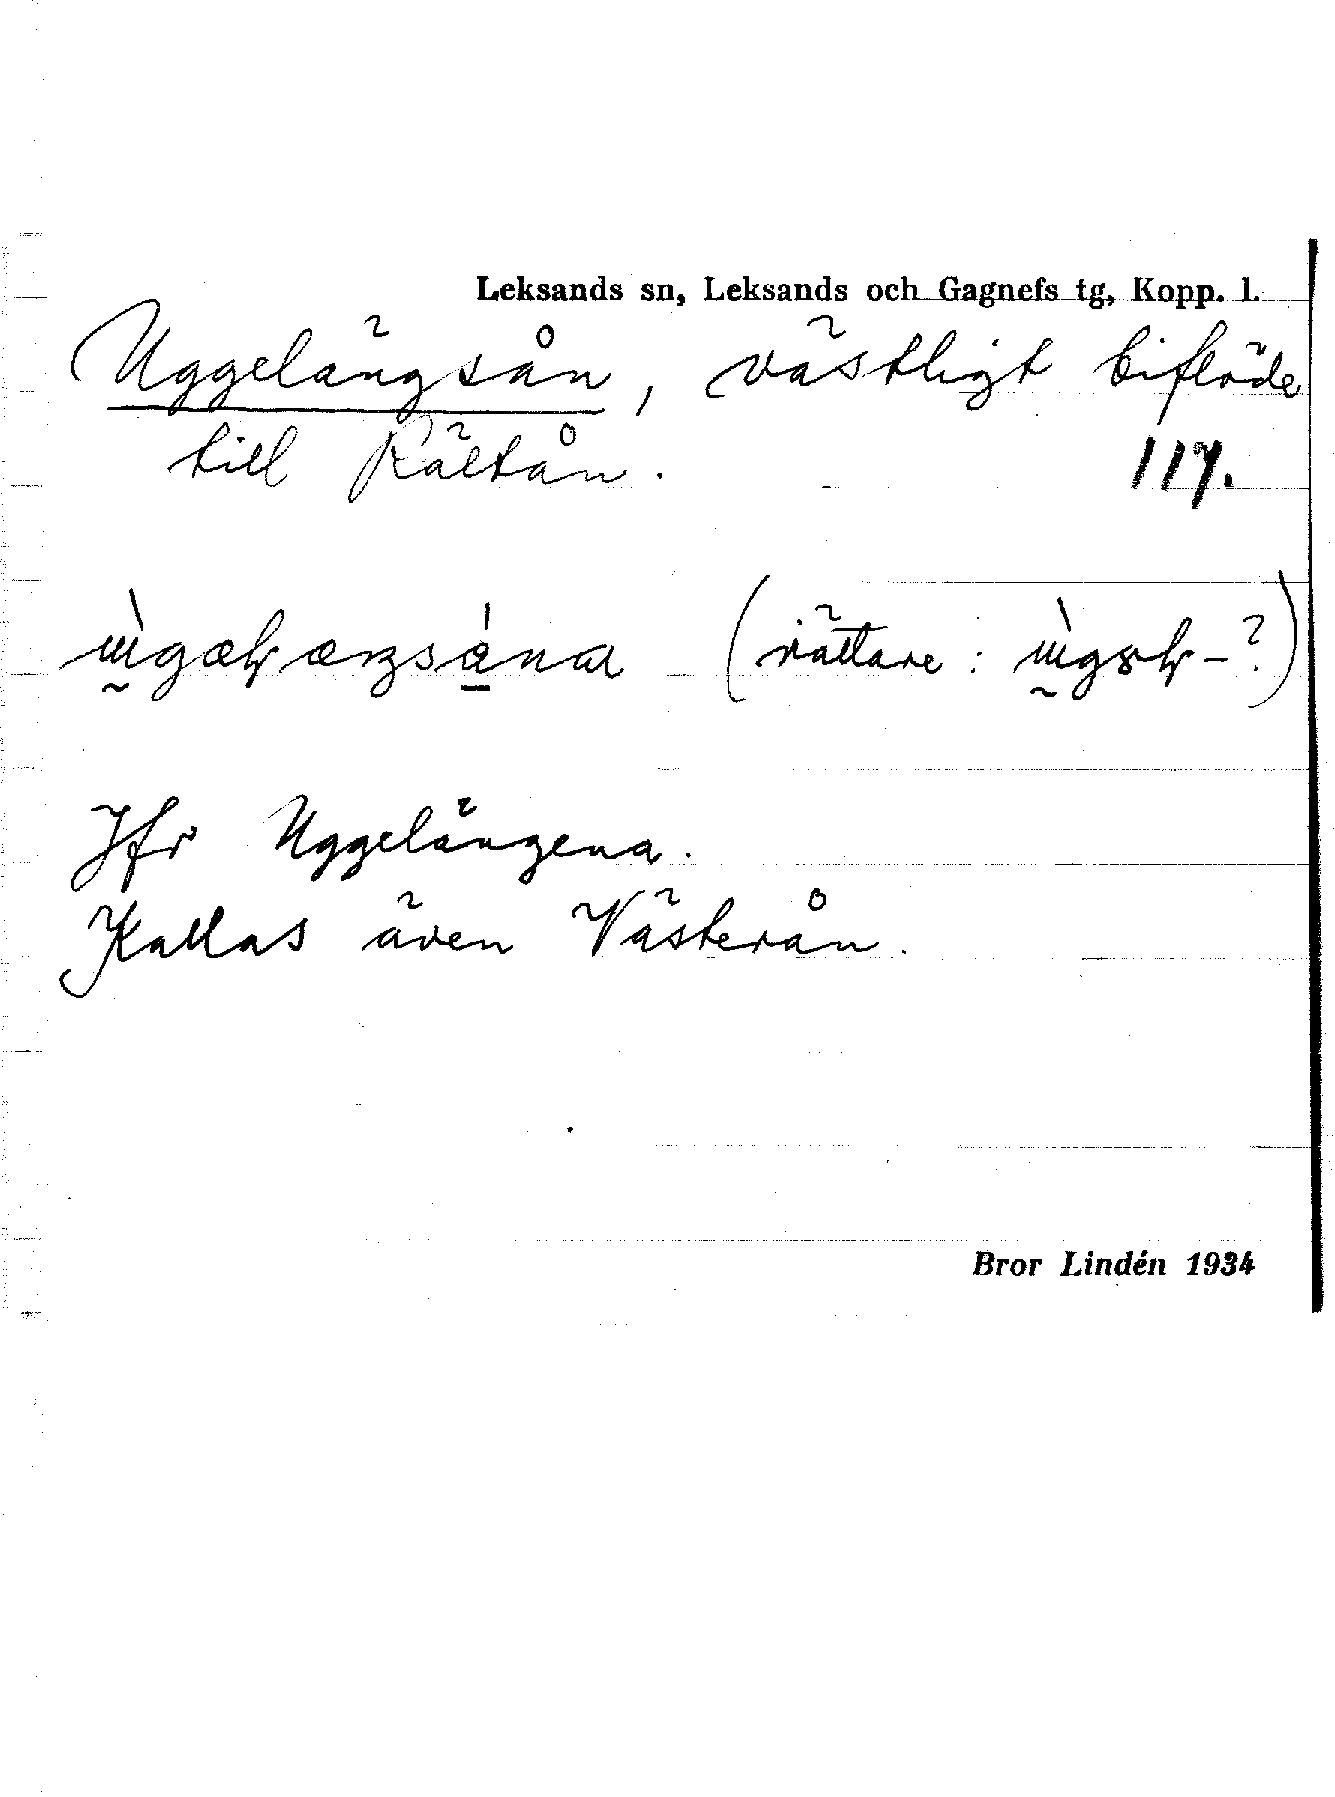 Leksands sn, Leksands och Gagnefs tg, Kopp. l.
Uggelängsån, västligt biflöde
till Rältån. 117.
(rättare: ?)
Jfr Uggelängena.
Kallas även Västerån.
Bror Lindén 1934